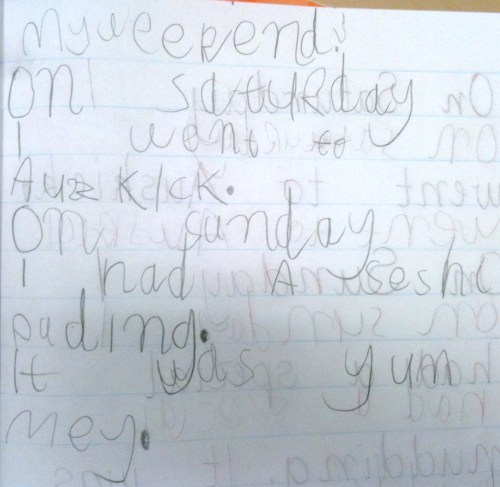 my weekend!
On saturday
I went to
Auzkick.
On sunday
I had A speshl
puding.
It was yum
mey.